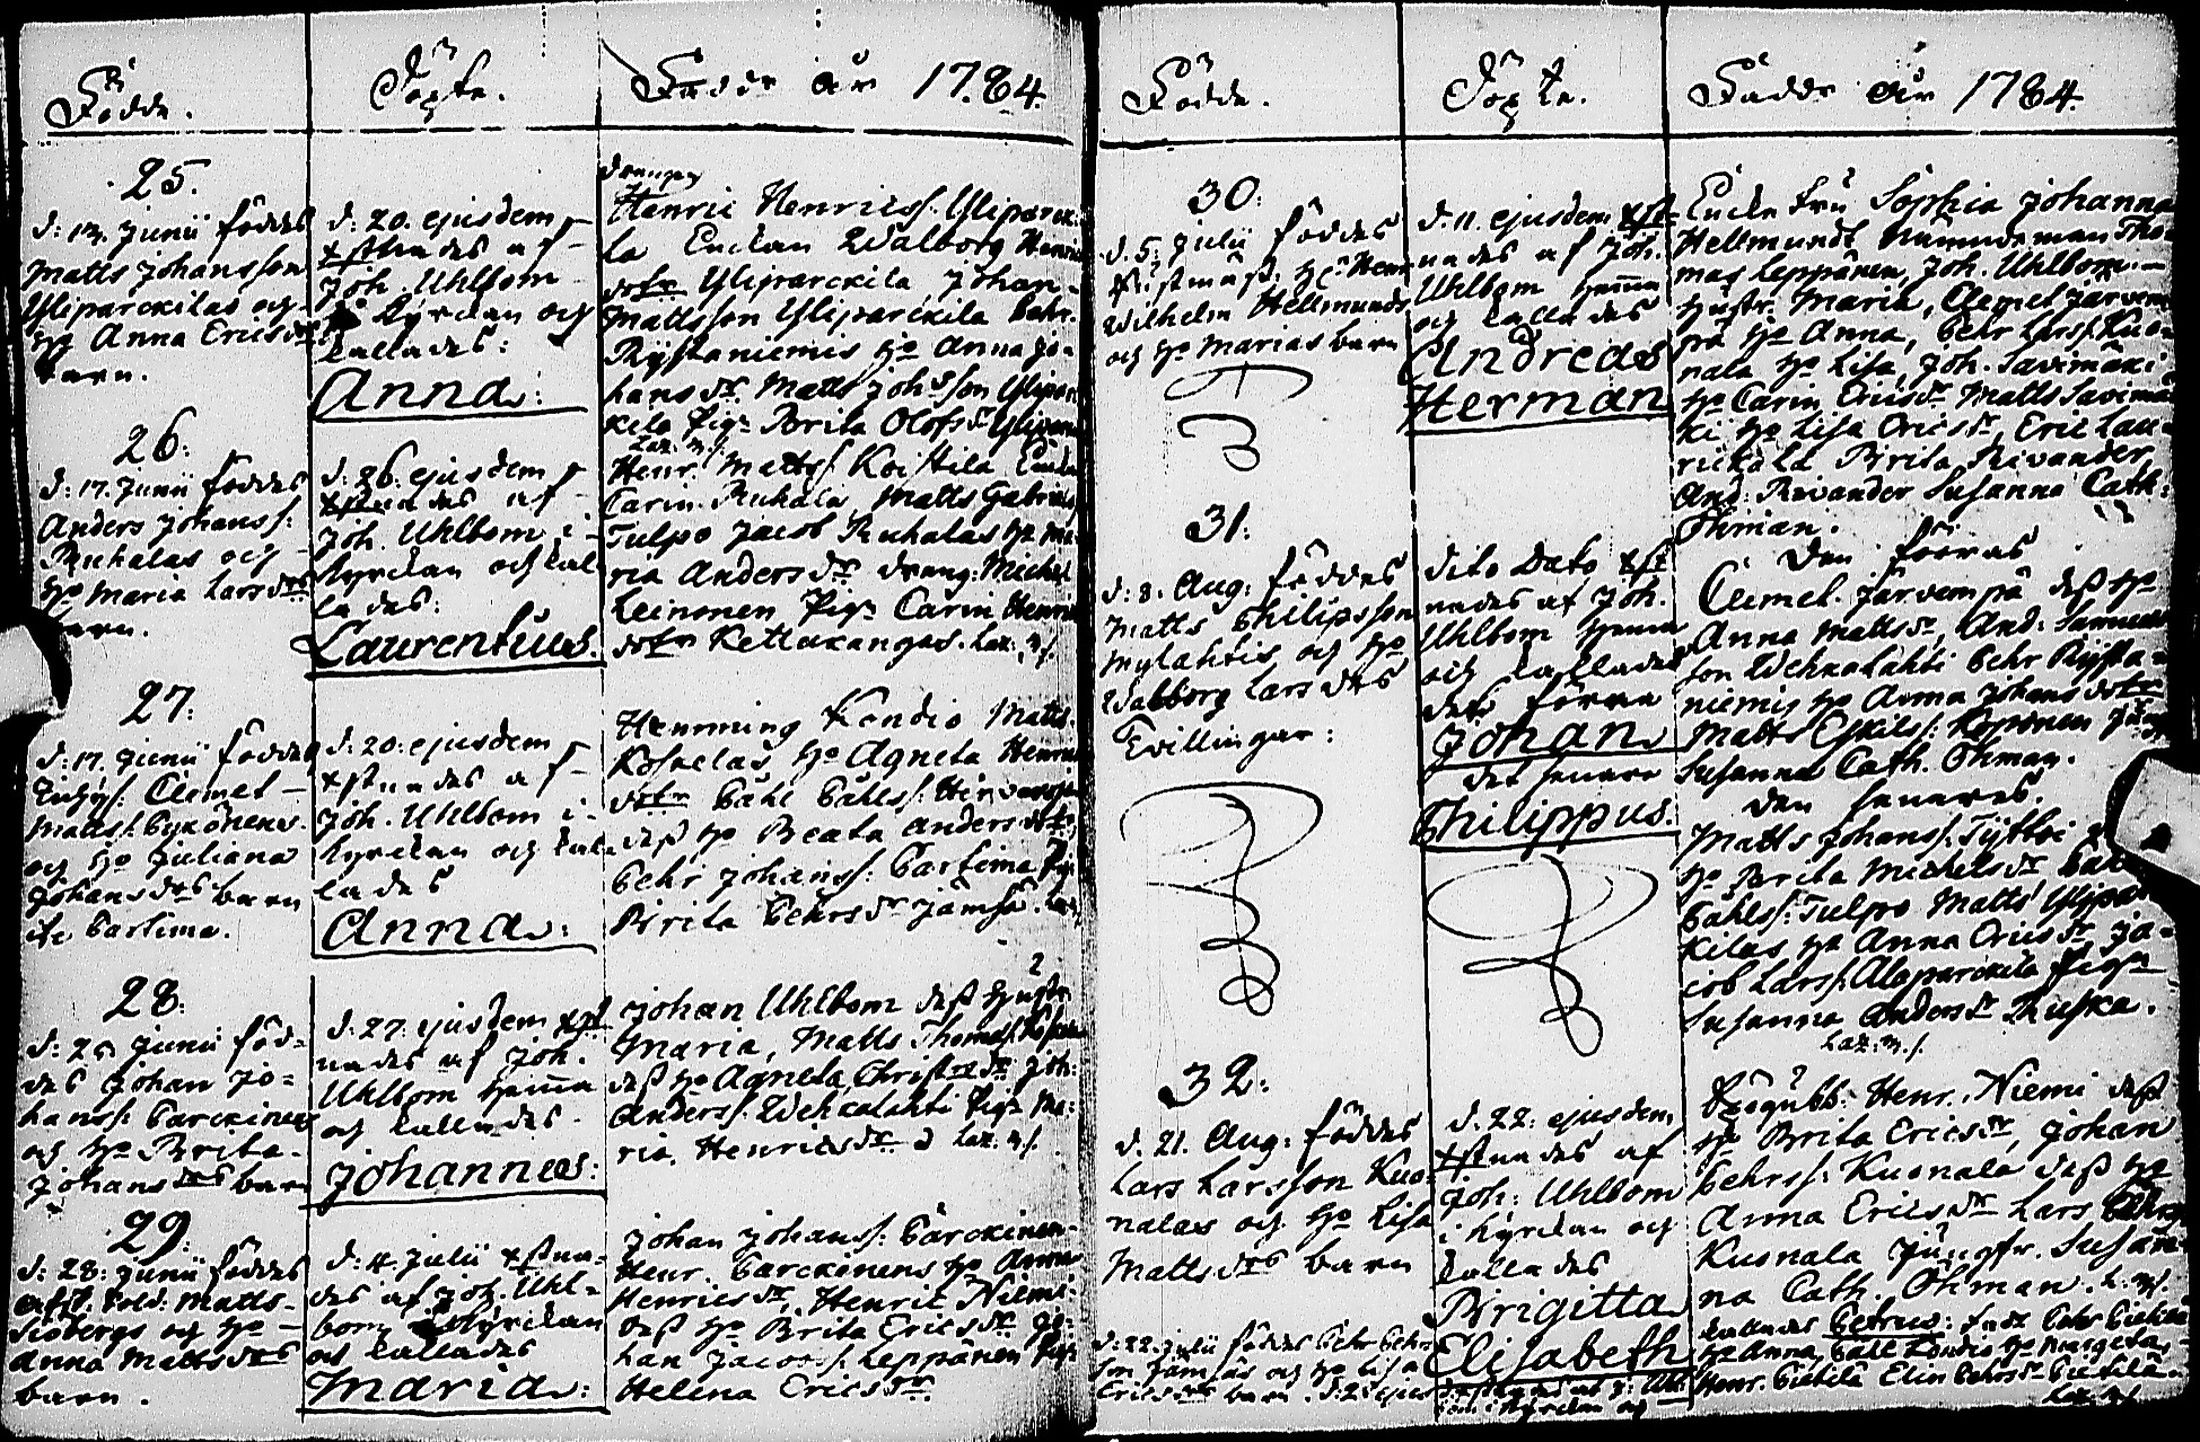 Födde.
Döpte.
Faddr år 1784.
25.
d: 13. Junii föddes
Matts Johansson
Yliparckilas och
ho Anna Ericsdrs
barn.
d: 20. ejusdem
xstnades af
Joh. Uhlbom
i Kyrckan och
kallades:
Anna:
drängen
Henric Henricss. Yliparcki
la Enckan Walborg Henrics
dotr Yliparckila, Johan
Mattsson Yliparckila Pehr
Rystaniemis ho Anna Jo-
hansdr. Matts Johsson Ylipar
kila Pig. Brita Olofsdr Ylipar
Laz. m.s.
26:
d: 17. Junii föddes
Anders Johanss:
Ruhalas och
ho Maria Larsdrs
barn.
d: 26. ejusdem
xstnades af
Joh. Uhlbom i
kyrckan och kal
lades:
Laurentius.
Henr. Mattss. Koistila Enckan
Carin Ruhala Matts Gabriels
Tulpo Jacob Ruhalas ho Ma-
ria Andersdr dräng: Michel
Leinonen Pig. Carin Henrics
dotr Kettukangas. Laz. m.s.
27:
d: 17. Junii föddes
Clemet
Mattss. Pykönens
och ho Juliana
Johansdrs barn
ifr. Partima.
d: 20: ejusdem
xstnades af
Joh. Uhlbom i
kyrckan och kal
lades
Anna:
Hemming Kondio Matts
Koskelas ho Agneta Henrics
dotr Påhl Påhlss:
dess ho Beata Andersdotr
Pehr Johanss: Partima Pig.
Brita Pehrsdr Jämsä. Laz.
28:
d: 25 Junii föd-
des Johan Jo-
hanss: Parckinens
och ho Brita
Johansdrs barn
d: 27. ejusdem xst
nades af Joh.
Uhlbom hemma
och kallades
Johannes:
2
Johan Uhlbom dess hustr
Maria, Matts Thomass. Koskela
dess ho Agneta Christ. dr Joh:
Anderss. Wehkalahti Pig. Ma:
ria Henricsdr Laz. m.s.
29:
d: 28: Junii föddes
afsk. Sold: Matts
Siöbergs och ho
Anna Mattsdrs
barn.
d: 4. Julii xstna-
des af Joh. Uhl-
bom i Kyrckan
och kallades
Maria:
Johan Johanss: Parckinen
Henr. Parckinens ho Anna
Henricsdr, Henric Niemi
dess ho Brita Ericsdr Jo-
han Jacobss. Leppänen Pig.
Helena Ericsdr.
Födde.
Döpte.
Faddr år 1784.
30:
d. 5. Julii föddes
hr Henr
Wilhelm Hellmunds
och ho Marias barn
d. 11. ejusdem xst-
nades af Joh.
Uhlbom hemma
och kallades
Andreas
Herman
Enckefru Sophia Johanna
Hellmundt Nämndeman Tho-
mas Leppänen, Joh. Uhlbom
hustr. Maria, Clemet Järvem
pä ho Anna, Pehr Larss. Kuo-
nala ho Lisa, Joh. Savimäki
ho Carin Ericsdr Matts Savimä
ki ho Lisa Ericsdr, Eric Lau-
rickala Brita Rivander,
And: Rivander Susanna Cath:
Öhman.
31:
d: 8. Aug: föddes
Matts Philipsson
Mylahtis och ho
Walborg Larsdrs
Tvillingar:
dito Dato xst
nades af Joh.
Uhlbom hemma
och kallades
det förra
Johan
det senare
Philippus.
den förras
Clemet Järvempä dess ho
Anna Mattsdr, And: Samuels
son Wehkalahti Pehr Rysta-
niemis ho Anna Johansdotr
Matts Eskilss: Kopponen Jungfr
Susanna Cath. Öhman.
den senares.
Matts Johanss: Tyttöi
ho Brita Michelsdr Påhl
Påhlss: Tulpo Matts Ylipar
kilas ho Anna Ericsdr Ja-
cob Larss. Alaparckila Pigan
Susanna Andersdr Ruska.
Laz. m.s.
32:
d. 21. Aug: föddes
Lars Larsson Kuo-
nalas och ho Lisa
Mattsdrs barn
d. 22: ejusdem
xstnades af
Joh: Uhlbom
i Kyrckan och
kallades
Brigitta
Elisabeth
Henr. Niemi dess
ho Brita Ericsdr, Johan
Pehrss: Kuonala dess ho
Anna Ericsdr Lars Pehrs
Kuonala Jungfr. Susan-
na Cath. Öhman. L. m.s.
d: 22. Julii föddes Pehr Pehrs
son Jämsäs och ho Lisa
Ericsdrs barn. d: 25 ejusd
xstnades af J: Uhl
bom i Kyrckan och
kallades Petrus: Fadr Pehr Pietilä
ho Anna, Påhl Kondio ho Margeta,
Henr. Pietilä Elin Pehrsdr Pietilä.
Laz. m.s.